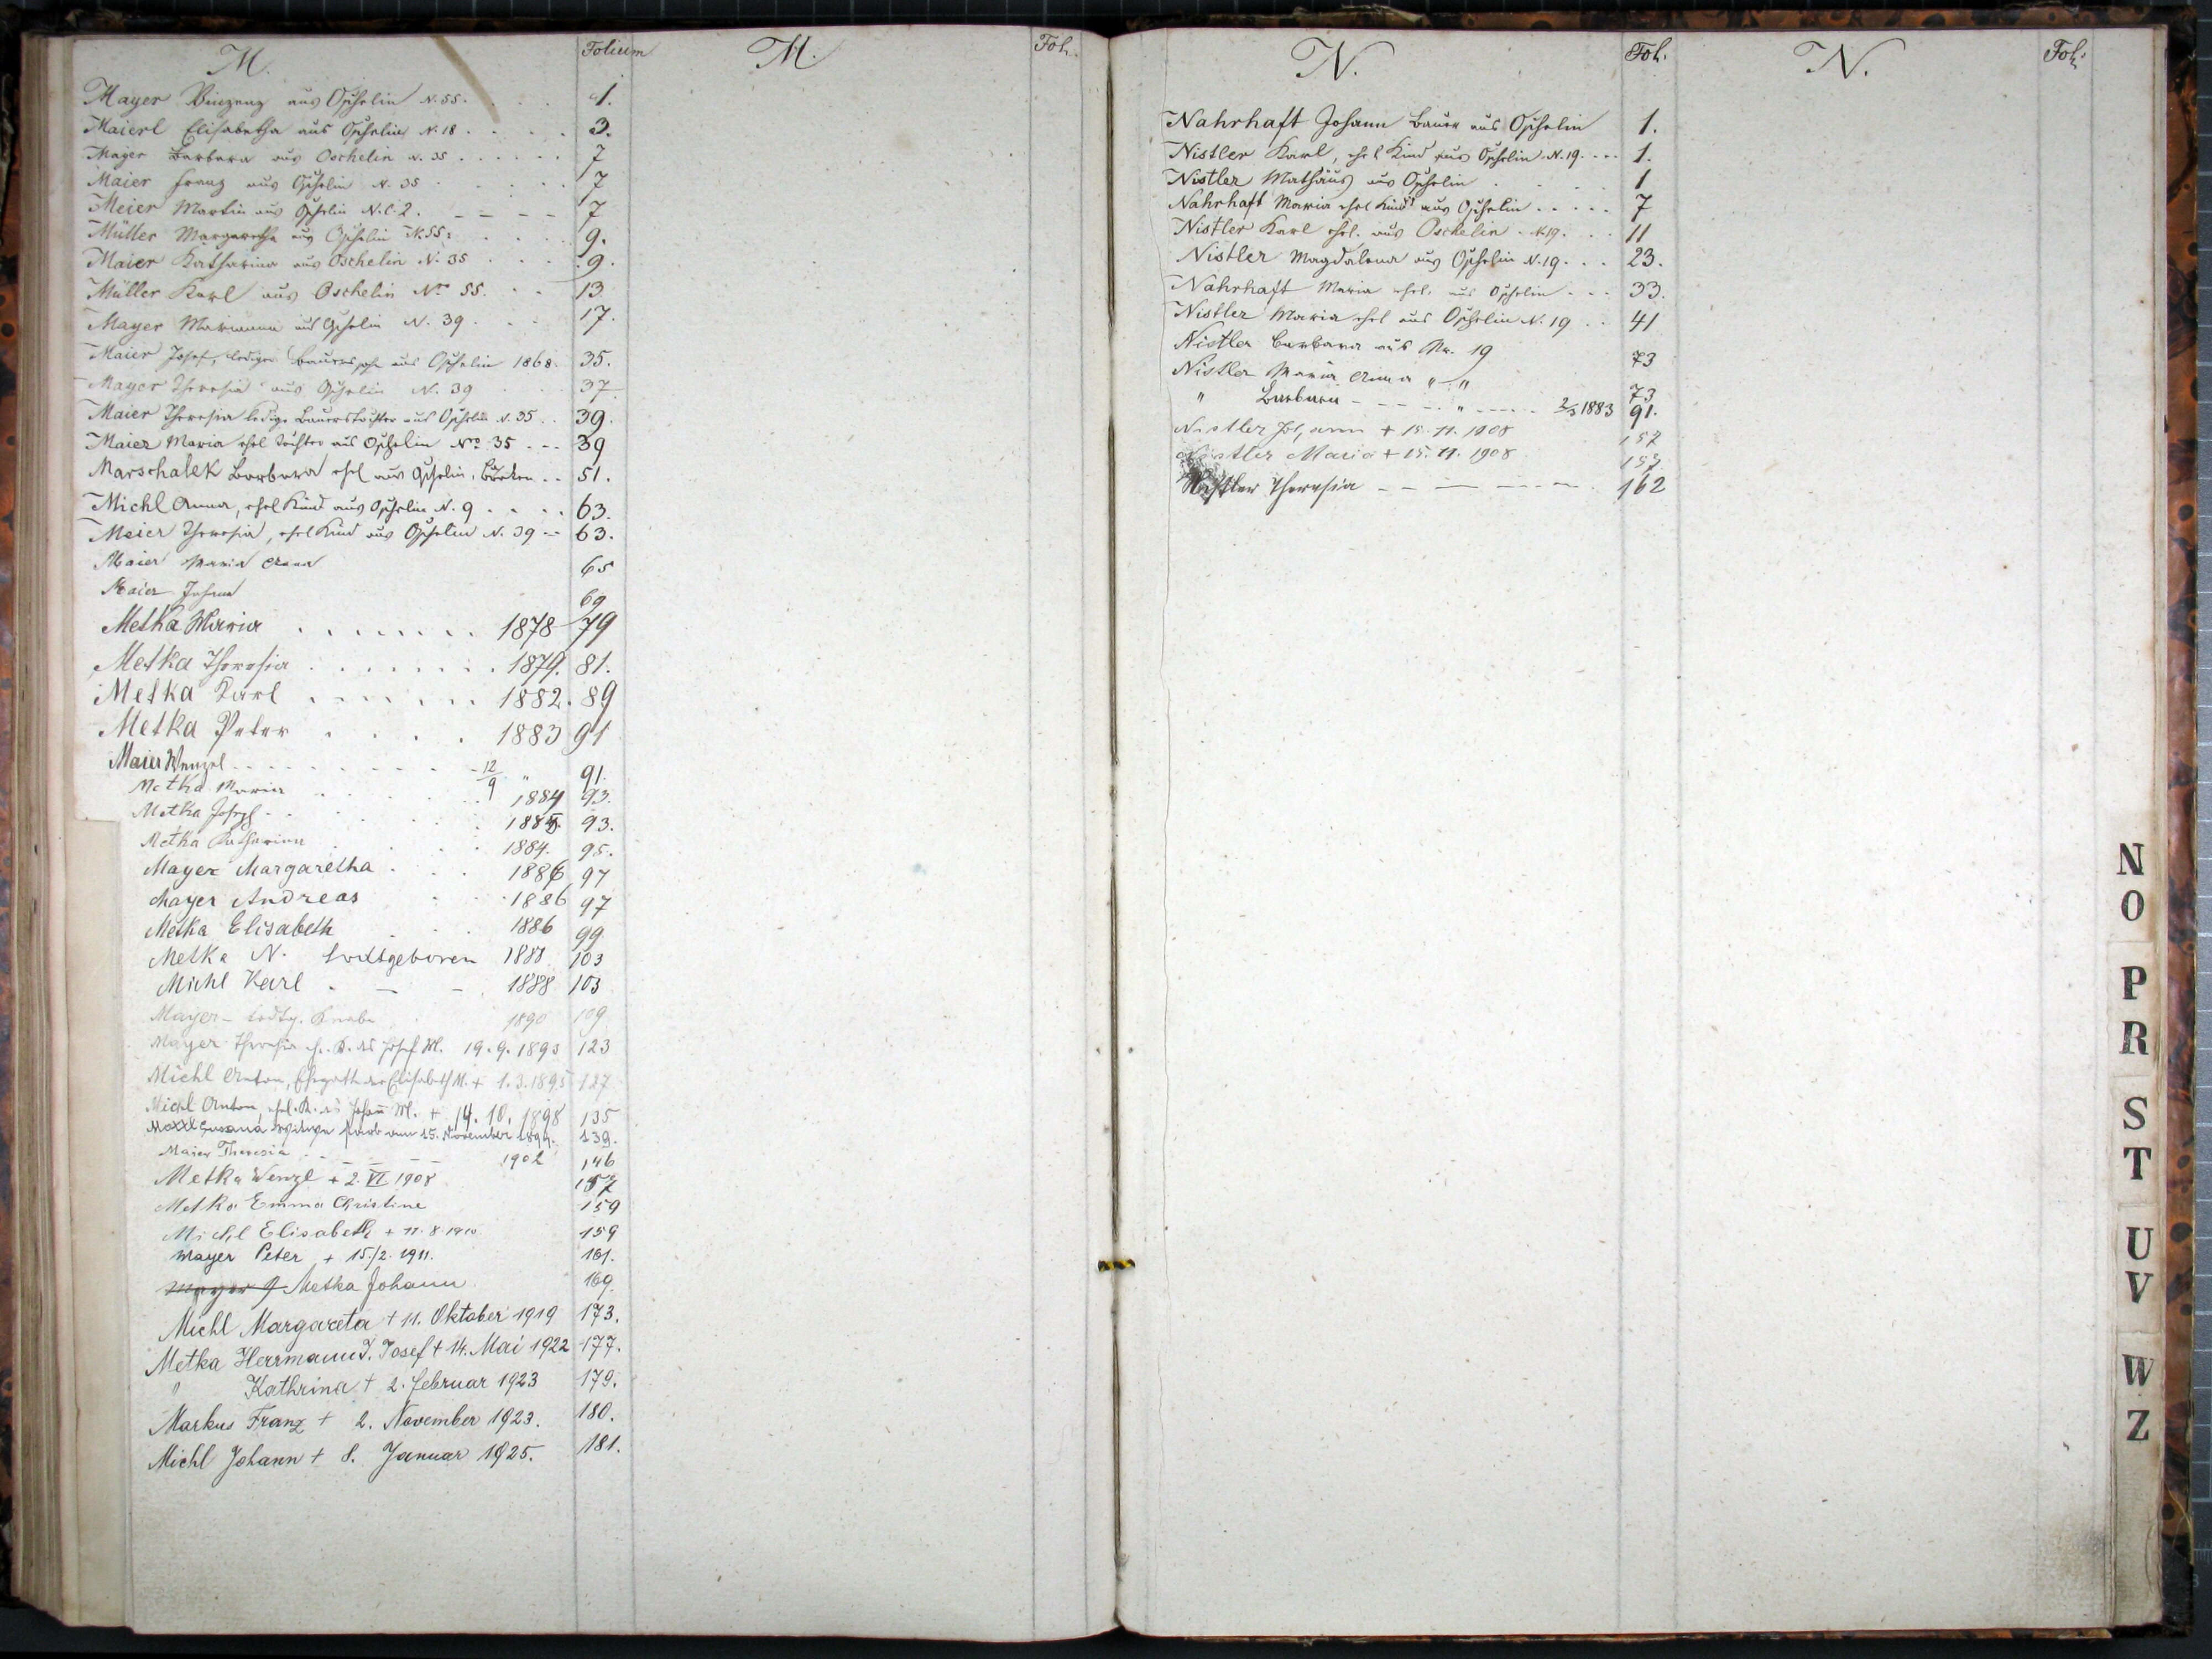 M.
Folium
M.
Fol.
Mayer Vinzenz aus Oschelin N. 55. 1.
Maierl Elisabetha aus Oschelin N. 18 3.
Mayer Barbara aus Oschelin N. 35 7
Maier Franz aus Oschelin N. 35 7
Meier Martin aus Oschelin N.C. 2. 7
Müller Margaretha aus Oschelin N. 55. 9.
Maier Katharina aus Oschelin N. 35 9.
Müller Karl aus Oschelin No 55. 13
Mayer Marianna aus Oschelin N. 39 17.
Maier Josef, lediger Bauerssohn aus Oschelin 1868. 35.
Mayer Theresia aus Oschelin N. 39 37
Maier Theresia ledige Bauerstochter aus Oschelin N. 35 39.
Maier Maria ehel Tochter aus Oschelin No 35 39
Marschalek Barbara ehel aus Oschelin, 51.
Michl Anna, ehel Kind aus Oschelin N. 9 63.
Meier Theresia, ehel Kind aus Oschelin N. 39 63.
Maier Maria Anna 65
Maier Johann 69
Metka Maria 1878 79
Metka Theresia 1879. 81.
Metka Karl 1882. 89
Metka Peter 1883 91
Maier Wenzel 12/9 " 91.
Metka Maria 1884 93.
Metka Joseph 188 93.
Metka Katharina 1884. 95.
Mayer Margaretha 1886 97
Mayer Andreas 1886 97
Metka Elisabeth 1886 99
Metka N. todtgeboren 1888 103
Michl Karl 1888 103
Mayer - todtg. Knabe 1890 109
Mayer Theresia e. K. des Josef M. 19. 9. 1893 123
Michl Anton, Ehegatte der Elisabeth M. + 1. 3. 1895 127
Michl Anton, ehel. K. des Johann M. + 14. 10. 1898 135
Susana Witwe starb am 15. November 1899. 139.
Maier Theresia 1902 146
Metka Wenzl + 2. VI 1908 157
Metka Emma Christine 159
Michl Elisabeth + 11. 8. 1910 159
Mayer Peter + 15./2. 1911. 161.
Mayer J Metka Johann 169.
Michl Margareta + 11. Oktober 1919 173.
Metka Herrmann J. Josef + 14. Mai 1922 177.
" Kathrina + 2. Februar 1923 179.
Markus Franz + 2. November 1923. 180.
Michl Johann + 8. Januar 1925. 181.
N.
Fol.
N.
Fol.
Nahrhaft Johann Bauer aus Oschelin 1.
Nistler Karl, ehel Kind aus Oschelin N. 19. 1.
Nistler Mathäus aus Oschelin 1
Nahrhaft Maria ehel Kind aus Oschelin 7
Nistler Karl ehel. aus Oschelin N. 19. 11
Nistler Magdalena aus Oschelin N. 19. 23.
Nahrhaft Maria ehel. aus Oschelin 33.
Nistler Maria ehel aus Oschelin N. 19 41
Nistler Barbara aus Nr. 19 73
Nistler Maria Anna " " 73
" Barbara " 2/3 1883 91.
Nistler Johann + 15. 11. 1908 157
Nistler Maria + 15. 11. 1908 157
Nistler Theresia 162
N
O
P
R
S
T
U
V
W
Z